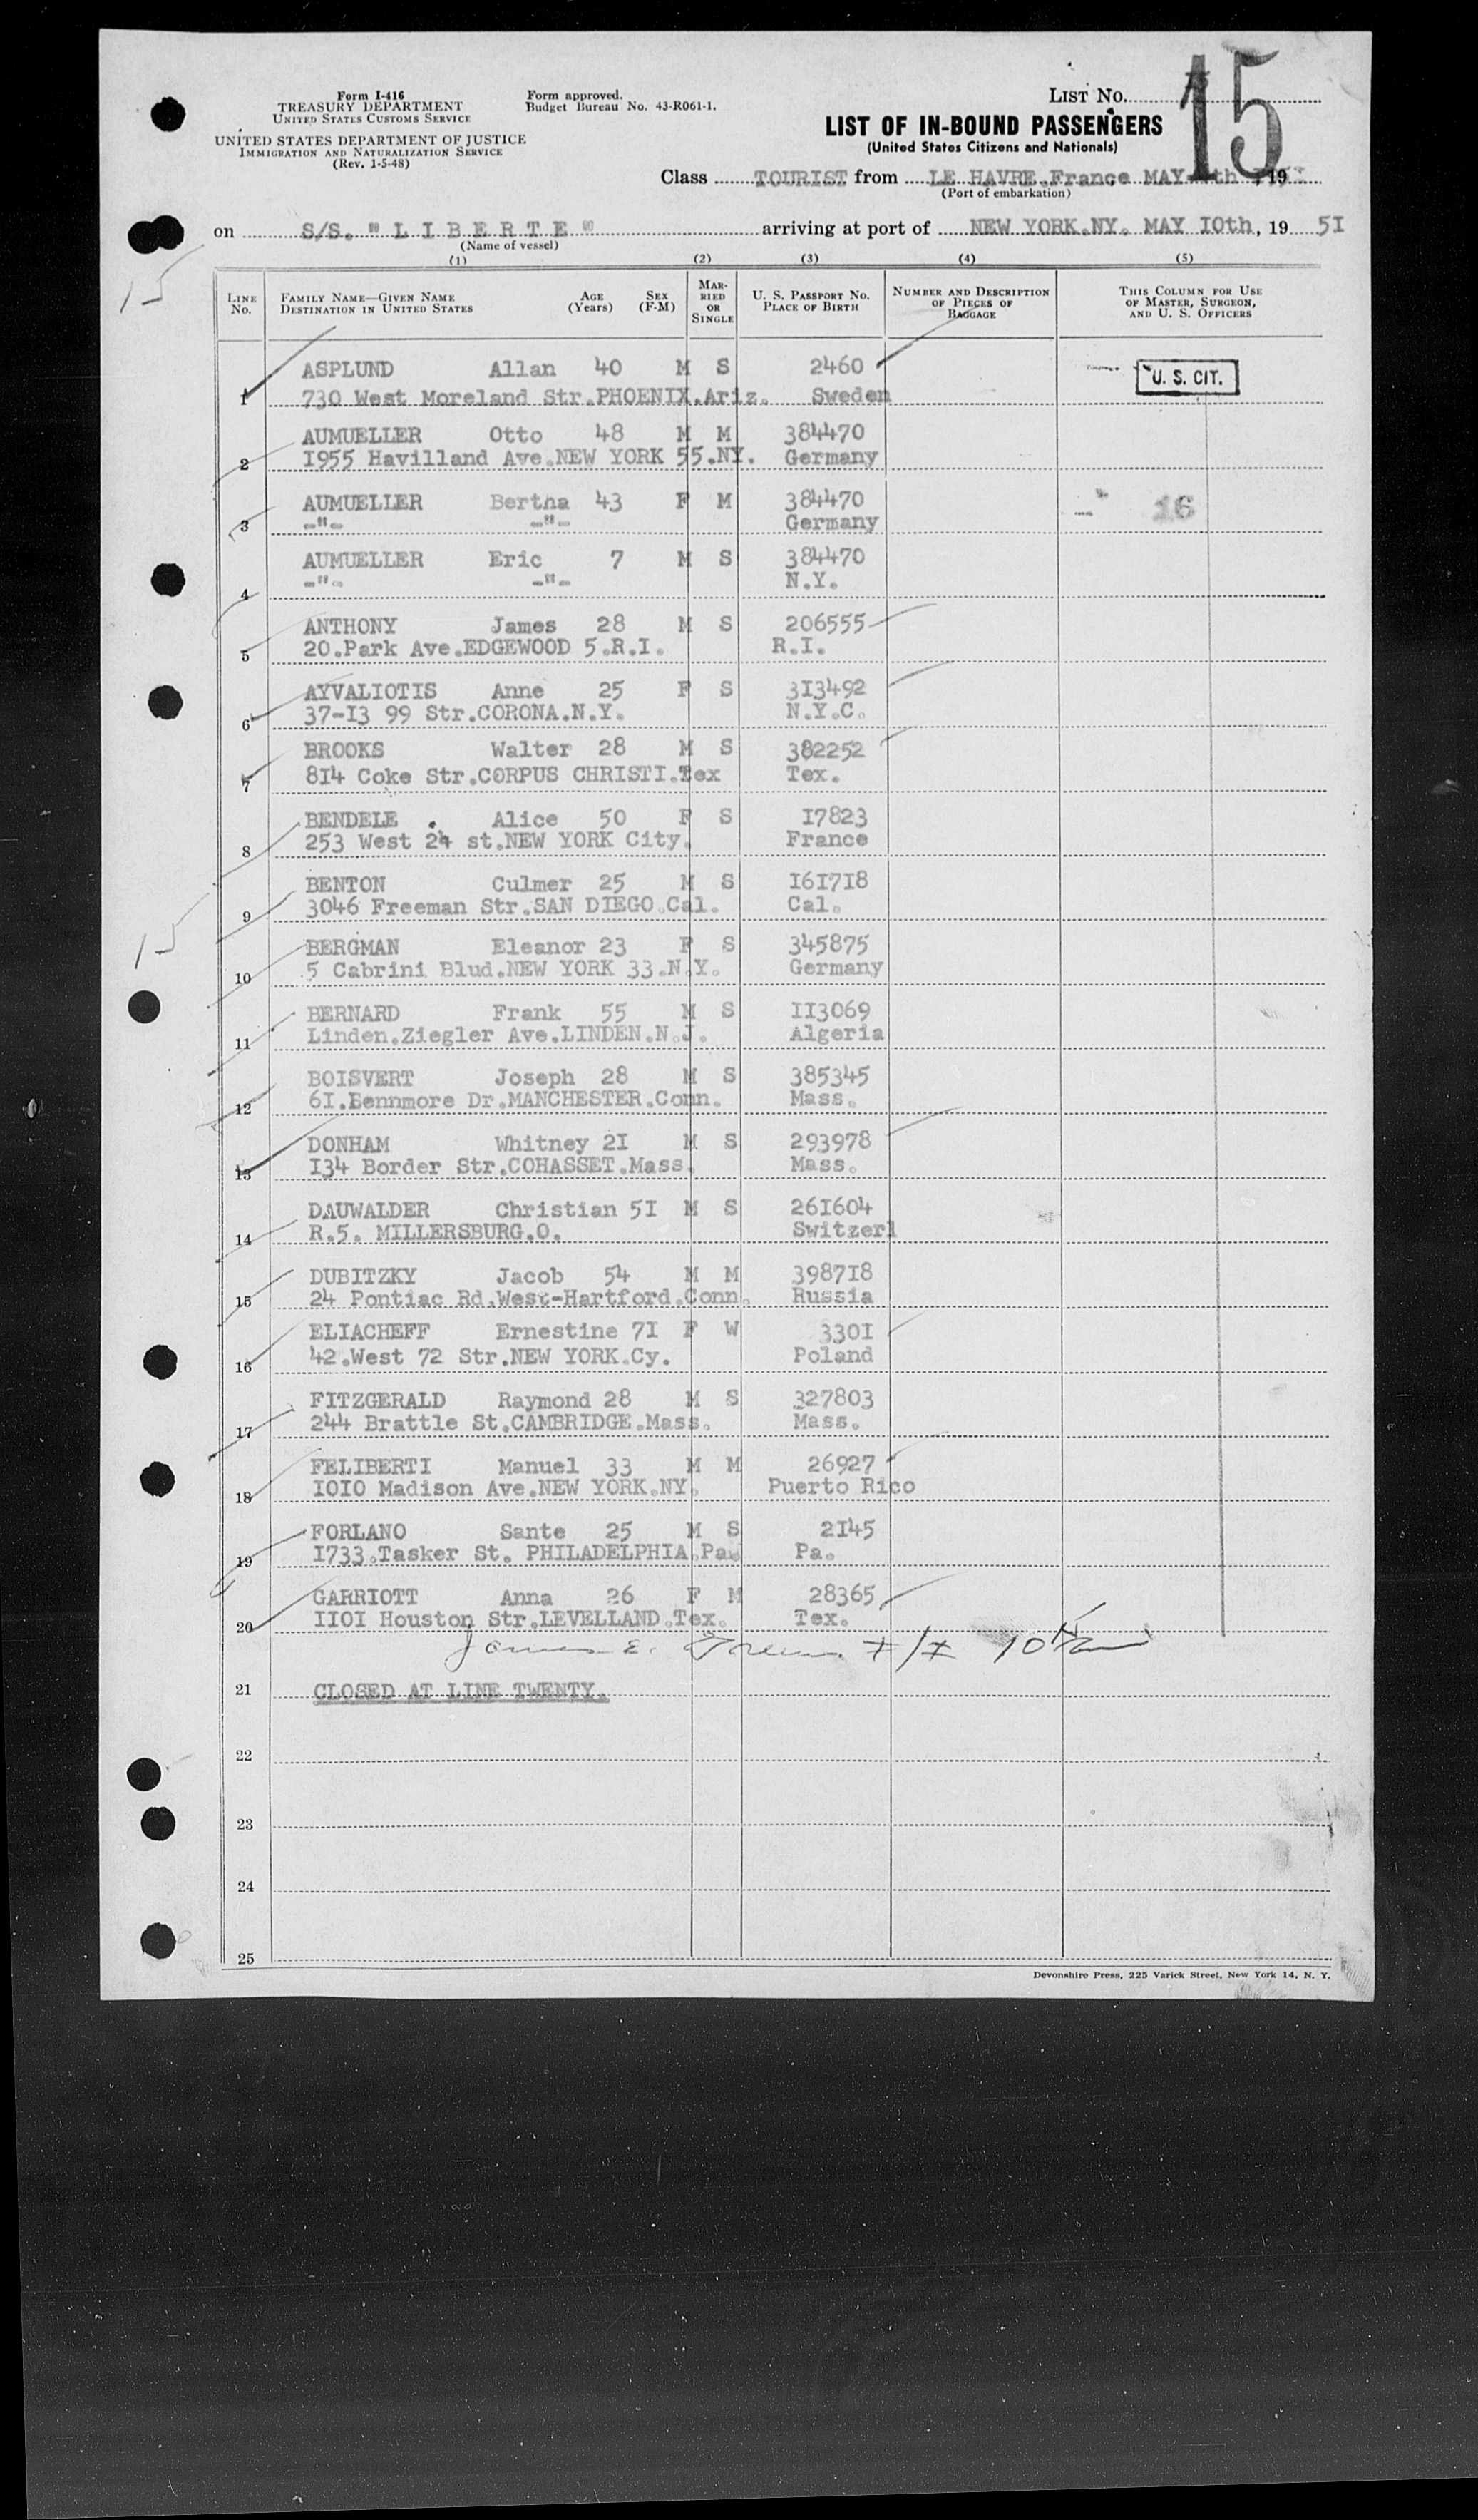 Form I-416
TREASURY DEPARTMENT
UNITED STATES CUSTOMS SERVICE
UNITED STATES DEPARTMENT OF JUSTICE
IMMIGRATION AND NATURALIZATION SERVICE
(Rev. 1-5-48)
Form approved.
Budget Bureau No. 43-R061-1.
LIST No. 15
LIST OF IN-BOUND PASSENGERS
(United States Citizens and Nationals)
Class TOURIST from LE HAVRE.France MAY th 19
(Port of embarkation)
on S/S. " L I B E R T E " arriving at port of NEW YORK.NY. MAY IOth, 19 5I
(Name of vessel)
(1) (2) (3) (4) (5)
LINE No. FAMILY NAME—GIVEN NAME DESTINATION IN UNITED STATES AGE (Years) SEX (F-M) MARRIED OR SINGLE U. S. PASSPORT NO. PLACE OF BIRTH NUMBER AND DESCRIPTION OF PIECES OF BAGGAGE THIS COLUMN FOR USE OF MASTER, SURGEON, AND U. S. OFFICERS
15
ASPLUND Allan 40 M S 2460 U. S. CIT.
1 730 West Moreland Str.PHOENIX.Ariz. Sweden
AUMUELLER Otto 48 M M 384470
2 I955 Havilland Ave.NEW YORK 55.NY. Germany
AUMUELLER Bertha 43 F M 384470 16
3 -"- -"- Germany
AUMUELLER Eric 7 M S 384470
4 -"- -"- N.Y.
ANTHONY James 28 M S 206555
5 20.Park Ave.EDGEWOOD 5.R.I. R.I.
AYVALIOTIS Anne 25 F S 3I3492
6 37-I3 99 Str.CORONA.N.Y. N.Y.C.
BROOKS Walter 28 M S 382252
7 8I4 Coke Str.CORPUS CHRISTI.Tex Tex.
BENDELE Alice 50 F S I7823
8 253 West 24 st.NEW YORK City. France
BENTON Culmer 25 M S I6I7I8
9 3046 Freeman Str.SAN DIEGO.Cal. Cal.
15
BERGMAN Eleanor 23 F S 345875
10 5 Cabrini Blud.NEW YORK 33.N.Y. Germany
BERNARD Frank 55 M S II3069
11 Linden.Ziegler Ave.LINDEN.N.J. Algeria
BOISVERT Joseph 28 M S 385345
12 6I.Bennmore Dr.MANCHESTER.Conn. Mass.
DONHAM Whitney 2I M S 293978
13 I34 Border Str.COHASSET.Mass. Mass.
DAUWALDER Christian 5I M S 26I604
14 R.5. MILLERSBURG.O. Switzerl
DUBITZKY Jacob 54 M M 3987I8
15 24 Pontiac Rd.West-Hartford.Conn. Russia
ELIACHEFF Ernestine 7I F W 330I
16 42.West 72 Str.NEW YORK.Cy. Poland
FITZGERALD Raymond 28 M S 327803
17 244 Brattle St.CAMBRIDGE.Mass. Mass.
FELIBERTI Manuel 33 M M 26927
18 IOIO Madison Ave.NEW YORK.NY. Puerto Rico
FORLANO Sante 25 M S 2I45
19 I733.Tasker St. PHILADELPHIA.Pa. Pa.
GARRIOTT Anna 26 F M 28365
20 IIOI Houston Str.LEVELLAND.Tex. Tex.
James E.
21 CLOSED AT LINE TWENTY.
22
23
24
25
Devonshire Press, 225 Varick Street, New York 14, N. Y.